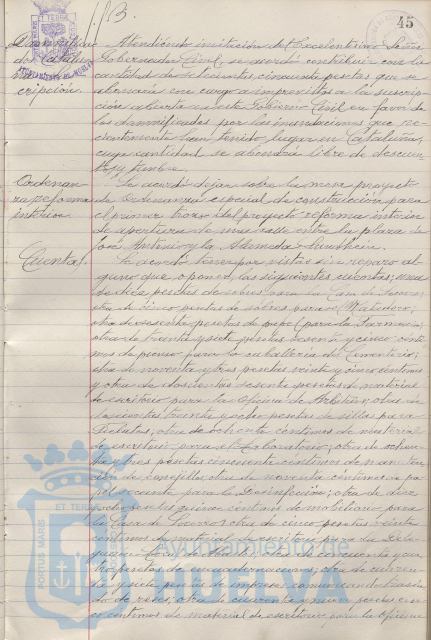 45
Damnificados Cataluña suscripción.
Atendiendo invitación del Excelentísimo Señor
Gobernador Civil, se acordó contribuir con la
cantidad de setecientas cincuenta pesetas que se
abonarán con cargo a imprevistos a la suscrip-
ción abierta en este Gobierno Civil en favor de
los damnificados por las inundaciones que re-
cientemente han tenido lugar en Cataluña,
cuya cantidad se abonará libre de descuen-
tos y timbre.
Ordenan-
za reforma
interior
Se acordó dejar sobre la mesa proyecto
de Ordenanza especial de construcción para
el primer trozo del proyecto reforma interior
de apertura de una calle entre la plaza de
José Antonio y la Alameda Sundheim.
Cuentas.
Se acordó tener por vistas sin reparo al-
guno que oponer, las siguientes cuentas: una
de diez pesetas de sobres para la Casa de Socorro;
otra de cinco pesetas de sobres para el Matadero;
otra de sesenta pesetas de papel para la Farmacia;
otra de treinta y siete pesetas sesenta y cinco cénti-
mos de pienso para la caballería del Cementerio;
otra de noventa y tres pesetas veinte y cinco céntimos
y otra de doscientas sesenta pesetas de material
de escritorio para la Oficina de Arbitrios; otra de
treinta y ocho pesetas de sillas para
otra de ochenta céntimos de material
de escritorio para el Laboratorio; otra de ochen-
ta y tres pesetas cincuenta céntimos de manuten-
ción de conejillos; otra de noventa céntimos de pa-
pel secante para la Desinfección; otra de diez
y ocho pesetas quince céntimos de mobiliario para
la Casa de Socorro; otra de cinco pesetas veinte
céntimos de material de escritorio para la Dele-
cincuenta y cua-
tro pesetas de encuadernaciones; otra de cuaren-
ta y siete pesetas de impresos comunicando trasla-
do de reses; otra de cuarenta y nueve pesetas cin-
co céntimos de material de escritorio para la Oficina
PORTUS MARIS ET TERRAE
Ayuntamiento de
HUELVA